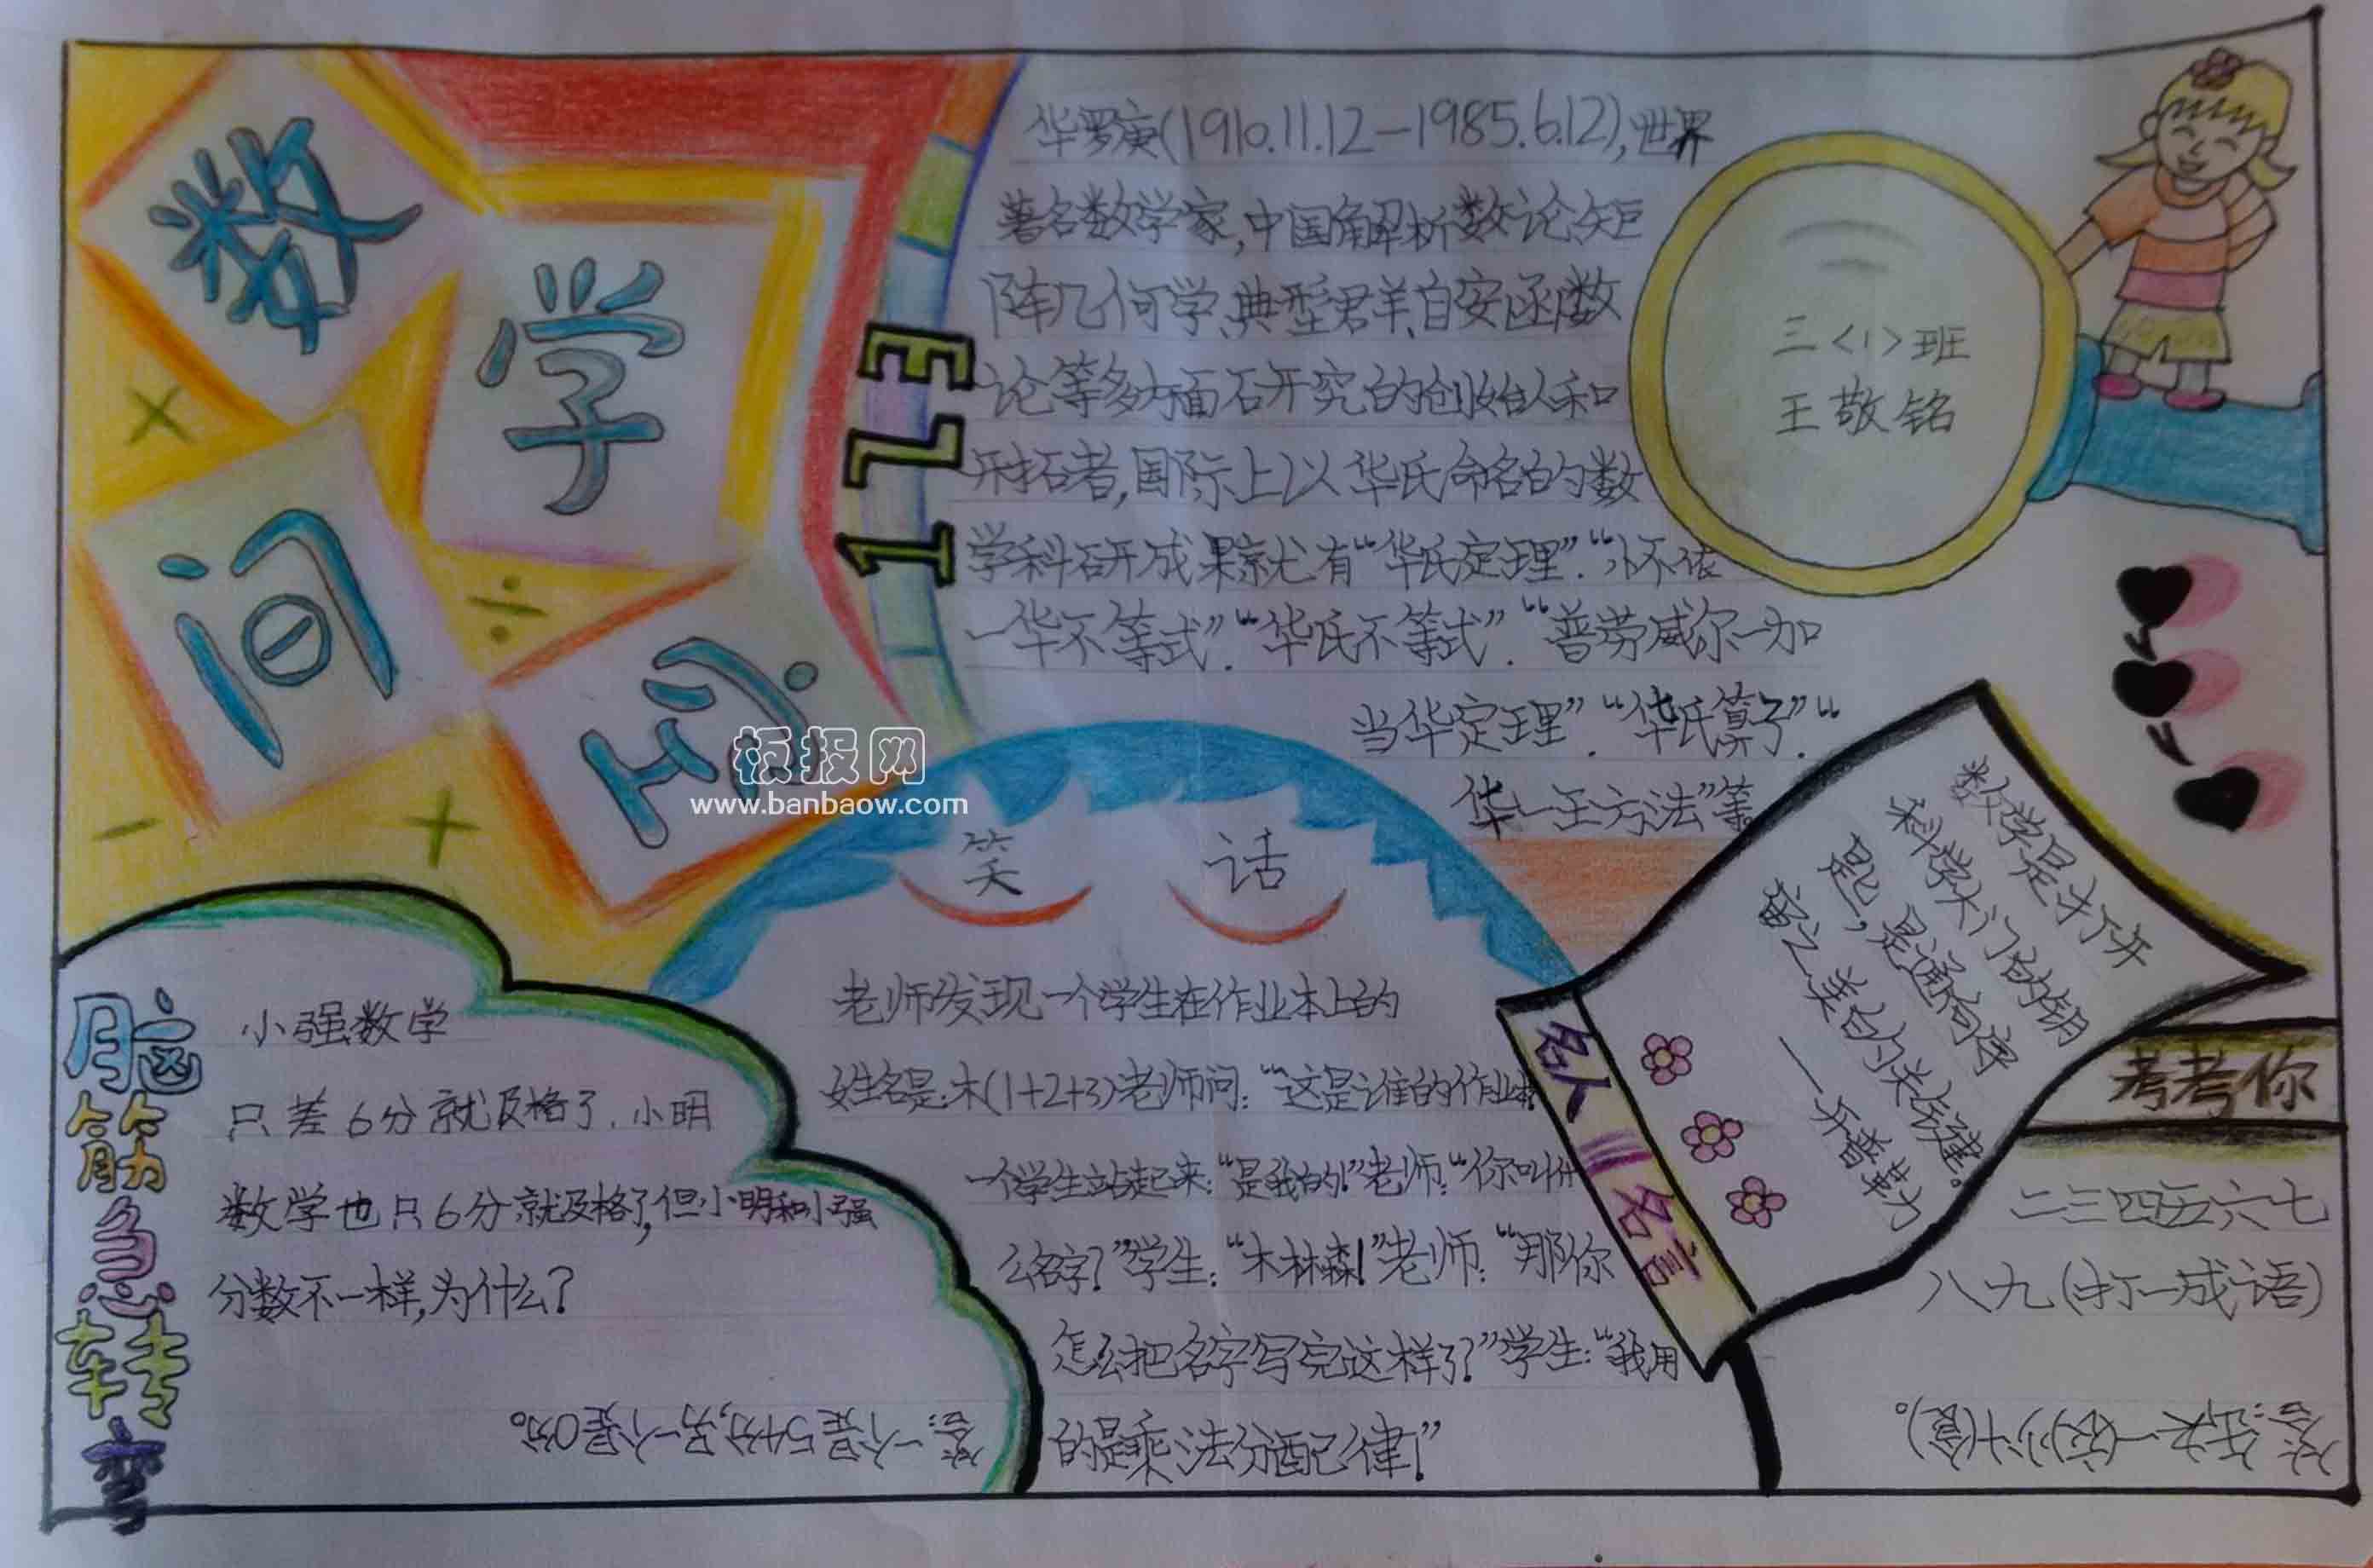 数
学
间
123
华罗庚(1910.11.12—1985.6.12),世界
著名数学家,中国解析数论矩
阵几何学、典型群、自安函数
论等多方面研究的创始人和
开拓者,国际上以华氏命名的数
学科研成果就有“华氏定理”.“怀依
一华不等式”.“华氏不等式”.“普劳威尔一加
当华定理”.“华氏算子”.“
华一王方法”等
三〈1〉班
王敬铭
板报网
www.banbaow.com
×
÷
－
＋
笑 话
老师发现一个学生在作业本上的
姓名是:木(1+2+3)老师问:“这是谁的作业本
一个学生站起来:“是我的!”老师:“你叫什
么名字?”学生:“木林森!”老师:“那你
怎么把名字写完这样了?”学生:“我用
的是乘法分配律!”
脑筋急转弯
小强数学
只差6分就及格了.小明
数学也只6分就及格了,但小明和小强
分数不一样,为什么?
答:一个是54分,另一个是0分。
名人名言
数学是打开
科学大门的钥
匙,是通向宇
宙之美的关键。
——乔普勒力
考考你
二三四五六七
八九(打一成语)
答:缺一(衣)少十(食)。